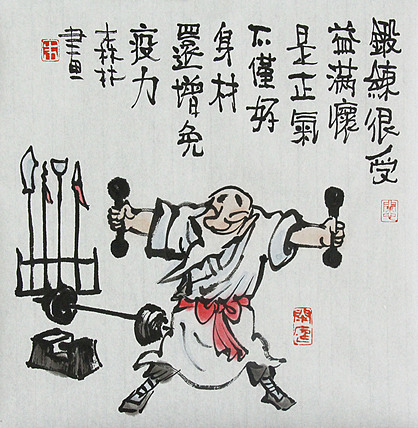 鍛練很受
益滿懷
是正氣
不僅好
身材
還增免
疫力
森林
畫